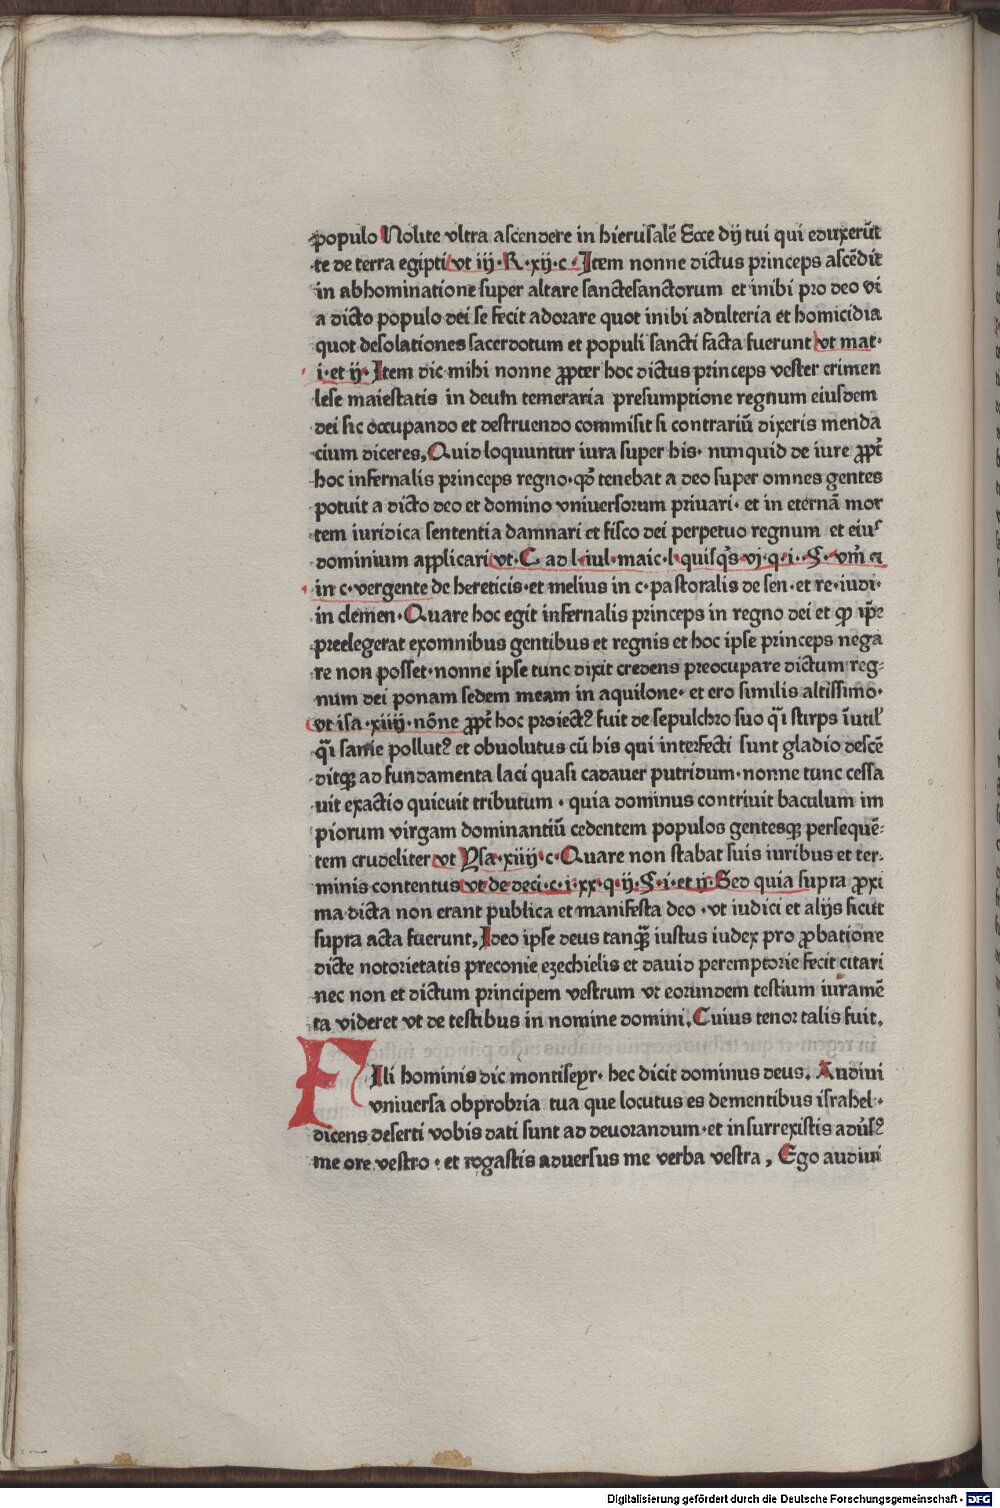 populo Nolite vltra ascendere in hierusalē Ecce dij tui qui eduxerūt
te de terra egipti vt iij·R·xij·c·Item nonne dictus princeps ascēdit
in abhominatione super altare sanctesanctorum et inibi pro deo vi
a dicto populo dei se fecit adorare quot inibi adulteria et homicidia
quot desolationes sacerdotum et populi sancti facta fuerunt vt mat·
i·et ij·Item dic mihi nonne ꝓpter hoc dictus princeps vester crimen
lese maiestatis in deum temeraria presumptione regnum eiusdem
dei sic occupando et destruendo commisit si contrariū dixeris menda
cium diceres, Quid loquuntur iura super his· nunquid de iure ꝓpt̄
hoc infernalis princeps regno·qd̄ tenebat a deo super omnes gentes
potuit a dicto deo et domino vniuersorum priuari· et in eternā mor
tem iuridica sententia damnari et fisco dei perpetuo regnum et eiuꝰ
dominium applicari vt·C· ad l·iul·maic·l·quisq̄s vj·q·i··§·vm̄ ⁊
in c·vergente de hereticis·et melius in c·pastoralis de sen·et re·iudi·
in clemen·Quare hoc egit infernalis princeps in regno dei et qͥ ip̄e
preelegerat exomnibus gentibus et regnis et hoc ipse princeps nega
re non posset·nonne ipse tunc dixit credens preocupare dictum reg-
num dei ponam sedem meam in aquilone· et ero similis altissimo·
vt isa·xiiij·nōne ꝓpt̄ hoc proiectꝰ fuit de sepulchro suo q̄i stirps īutil̓
q̄i sanie pollutꝰ et obuolutus cū his qui interfecti sunt gladio descē
ditqꝫ ad fundamenta laci quasi cadauer putridum·nonne tunc cessa
uit exactio quieuit tributum · quia dominus contriuit baculum im
piorum virgam dominantiū cedentem populos gentesqꝫ persequē-
tem crudeliter vt Ysa·xiiij·c·Quare non stabat suis iuribus et ter-
minis contentus vt de deci·c·i·xx·q·ij·§·i·et ij·Sed quia supra ꝓxi
ma dicta non erant publica et manifesta deo ·vt iudici et alijs sicut
supra acta fuerunt, Ideo ipse deus tanqꝫ̄ iustus iudex pro ꝓbatione
dicte notorietatis preconie ezechielis et dauid peremptorie fecit citari
nec non et dictum principem vestrum vt eorundem testium iuramē
ta videret vt de testibus in nomine domini, Cuius tenor talis fuit,
FIli hominis dic montiseyr· hec dicit dominus deus, Audiui
vniuersa obprobria tua que locutus es dementibus israhel·
dicens deserti vobis dati sunt ad deuorandum·et insurrexistis adūsꝰ
me ore vestro · et rogastis aduersus me verba vestra, Ego audiui
Digitalisierung gefördert durch die Deutsche Forschungsgemeinschaft - DFG